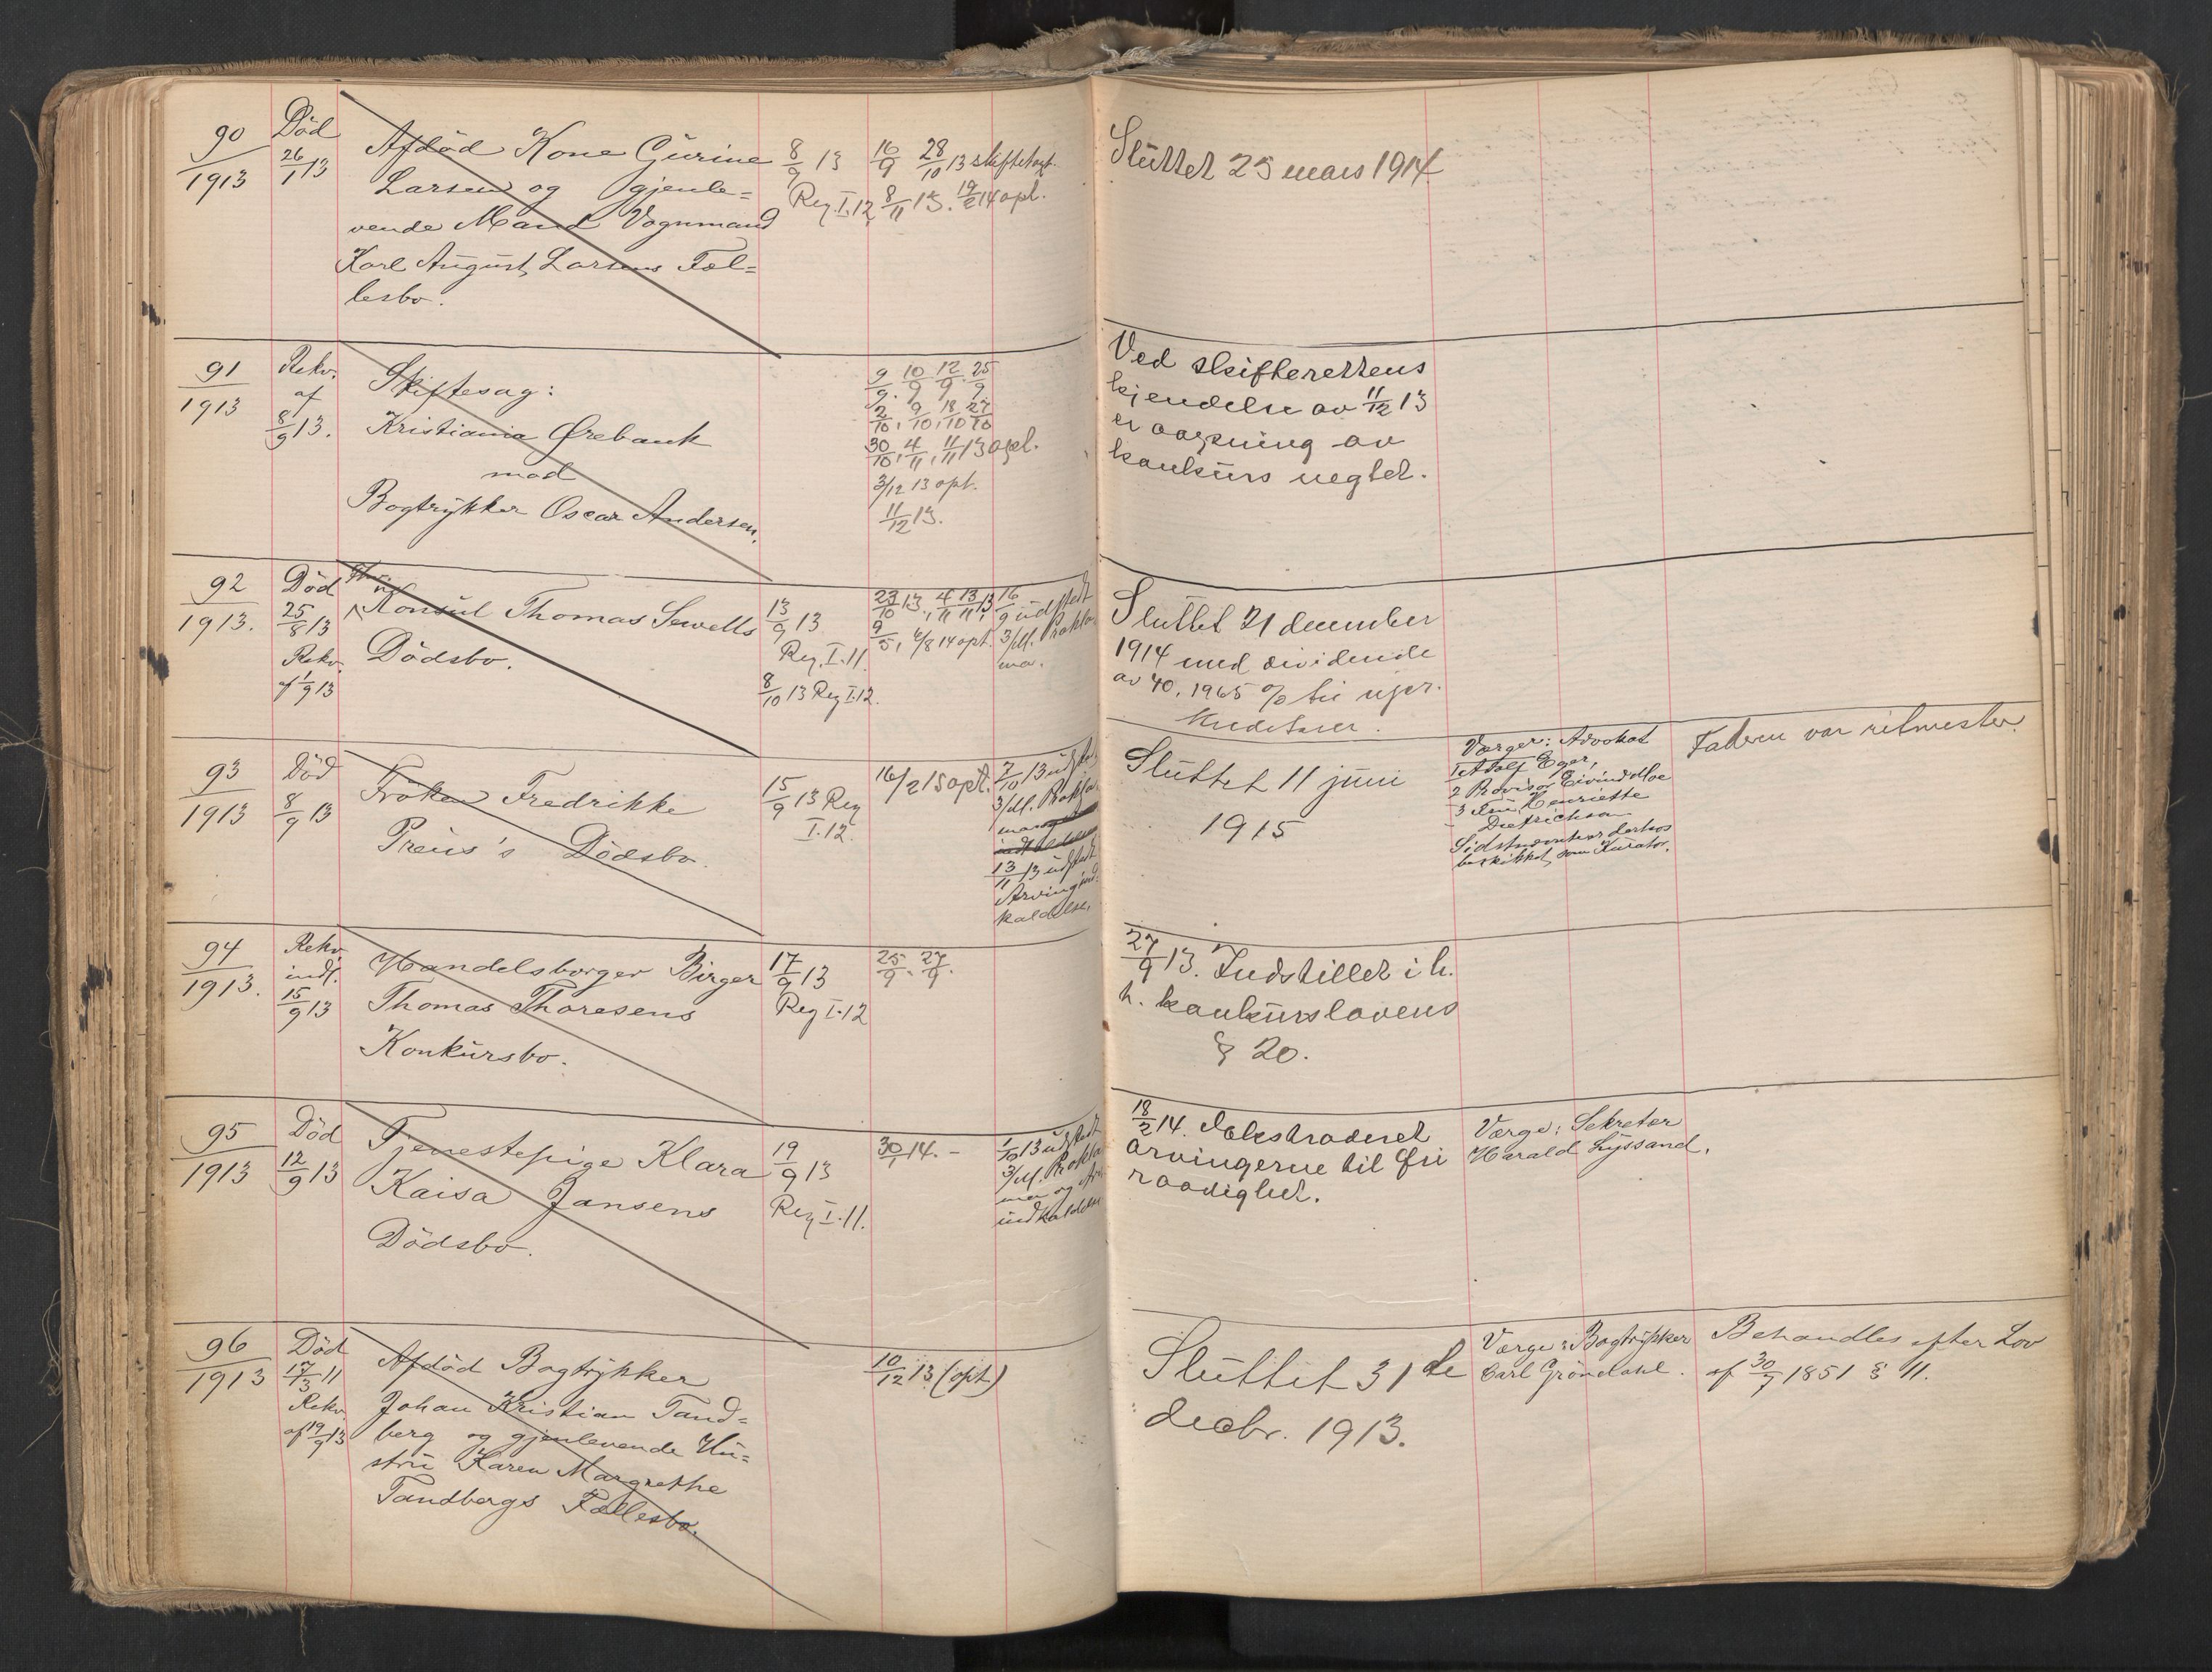 90
1913
Död
26/1 13
Afdöd Kone Gurine
Larsen og gjenle=
vende Mand Vognmand
Karl August Larsens Fæl=
lesbo.
8/9 13
Reg. I.12
16/9 28/10 13 skiftetagt.
8/11 13. 19/2 14 opt.
Sluttet 25 mars 1914
91
1913
Rekv.
af
8/9 13.
Skiftesag:
Kristiania Ørebank
mod
Bogtrykker Oscar Andersen.
9/9. 10/9 12/9. 25/9
2/10, 9/10, 18/10 27/10
30/10, 4/11, 11/11 13 opt.
3/12 13 opt.
11/12 13.
Ved skifterettens
kjendelse av 11/12 13
er aapning av
konkurs negtet.
92
1913.
Död
25/8 13
Rekv.
af 1/9 13
Konsul Thomas Sewells
Dödsbo.
13/9 13
Reg. I.11.
8/10 13 Reg I.12.
23/10 13., 4/11 13/11 13
9/5, 6/8 14 opt.
16/9 udstedt
3/m. Prokla
ma.
Sluttet 21 december
1914 med dividende
av 40,1965 % til upr.
kreditorer.
93
1913
Död
8/9 13
Fröken Fredrikke
Preus's Dödsbo.
15/9 13 Reg
I.12.
16/2 15 opt.
7/10 13 udst.
3/m. Prokla
ma
13/11 13 udstedt
Arvingind=
kaldelse,
Sluttet 11 juni
1915
Værger: Advokat
1 Adolf Eger,
2 Provisor Eivind Moe
3 Fru Henriette
Dietrichson
Sidstnævnte derhos
beskikket som Kurator.
Faderen var ritmester.
94
1913.
Rekv.
indl.
15/9 13
Handelsborger Birger
Thomas Thoresens
Konkursbo.
17/9 13
Reg I.12
25/9. 27/9.
27/9 13. Indstillet i h.
t. konkurslovens
§ 20.
95
1913
Död
12/9 13
Tjenestepige Klara
Kaisa Jansens
Dödsbo.
19/9 13
Reg I.11.
30/1 14. -
1/10 13 udstedt
3/m. Prokla
ma og Arv
indkaldelse
18/2 14. Ekstraderet
arvingerne til fri
raadighet.
Værge: Sekretær
Harald Lyssand.
96
1913
Död
17/3 11
Rekv.
af 19/9 13
Afdöd Bogtrykker
Johan Kristian Tand=
berg og gjenlevende Hu=
stru Karen Margrethe
Tandbergs Fællesbo.
10/12 13 (opt)
Sluttet 31te
decbr. 1913.
Værge: Bogtrykker
Carl Gröndahl.
Behandles efter Lov
af 30/7 1851 § 11.